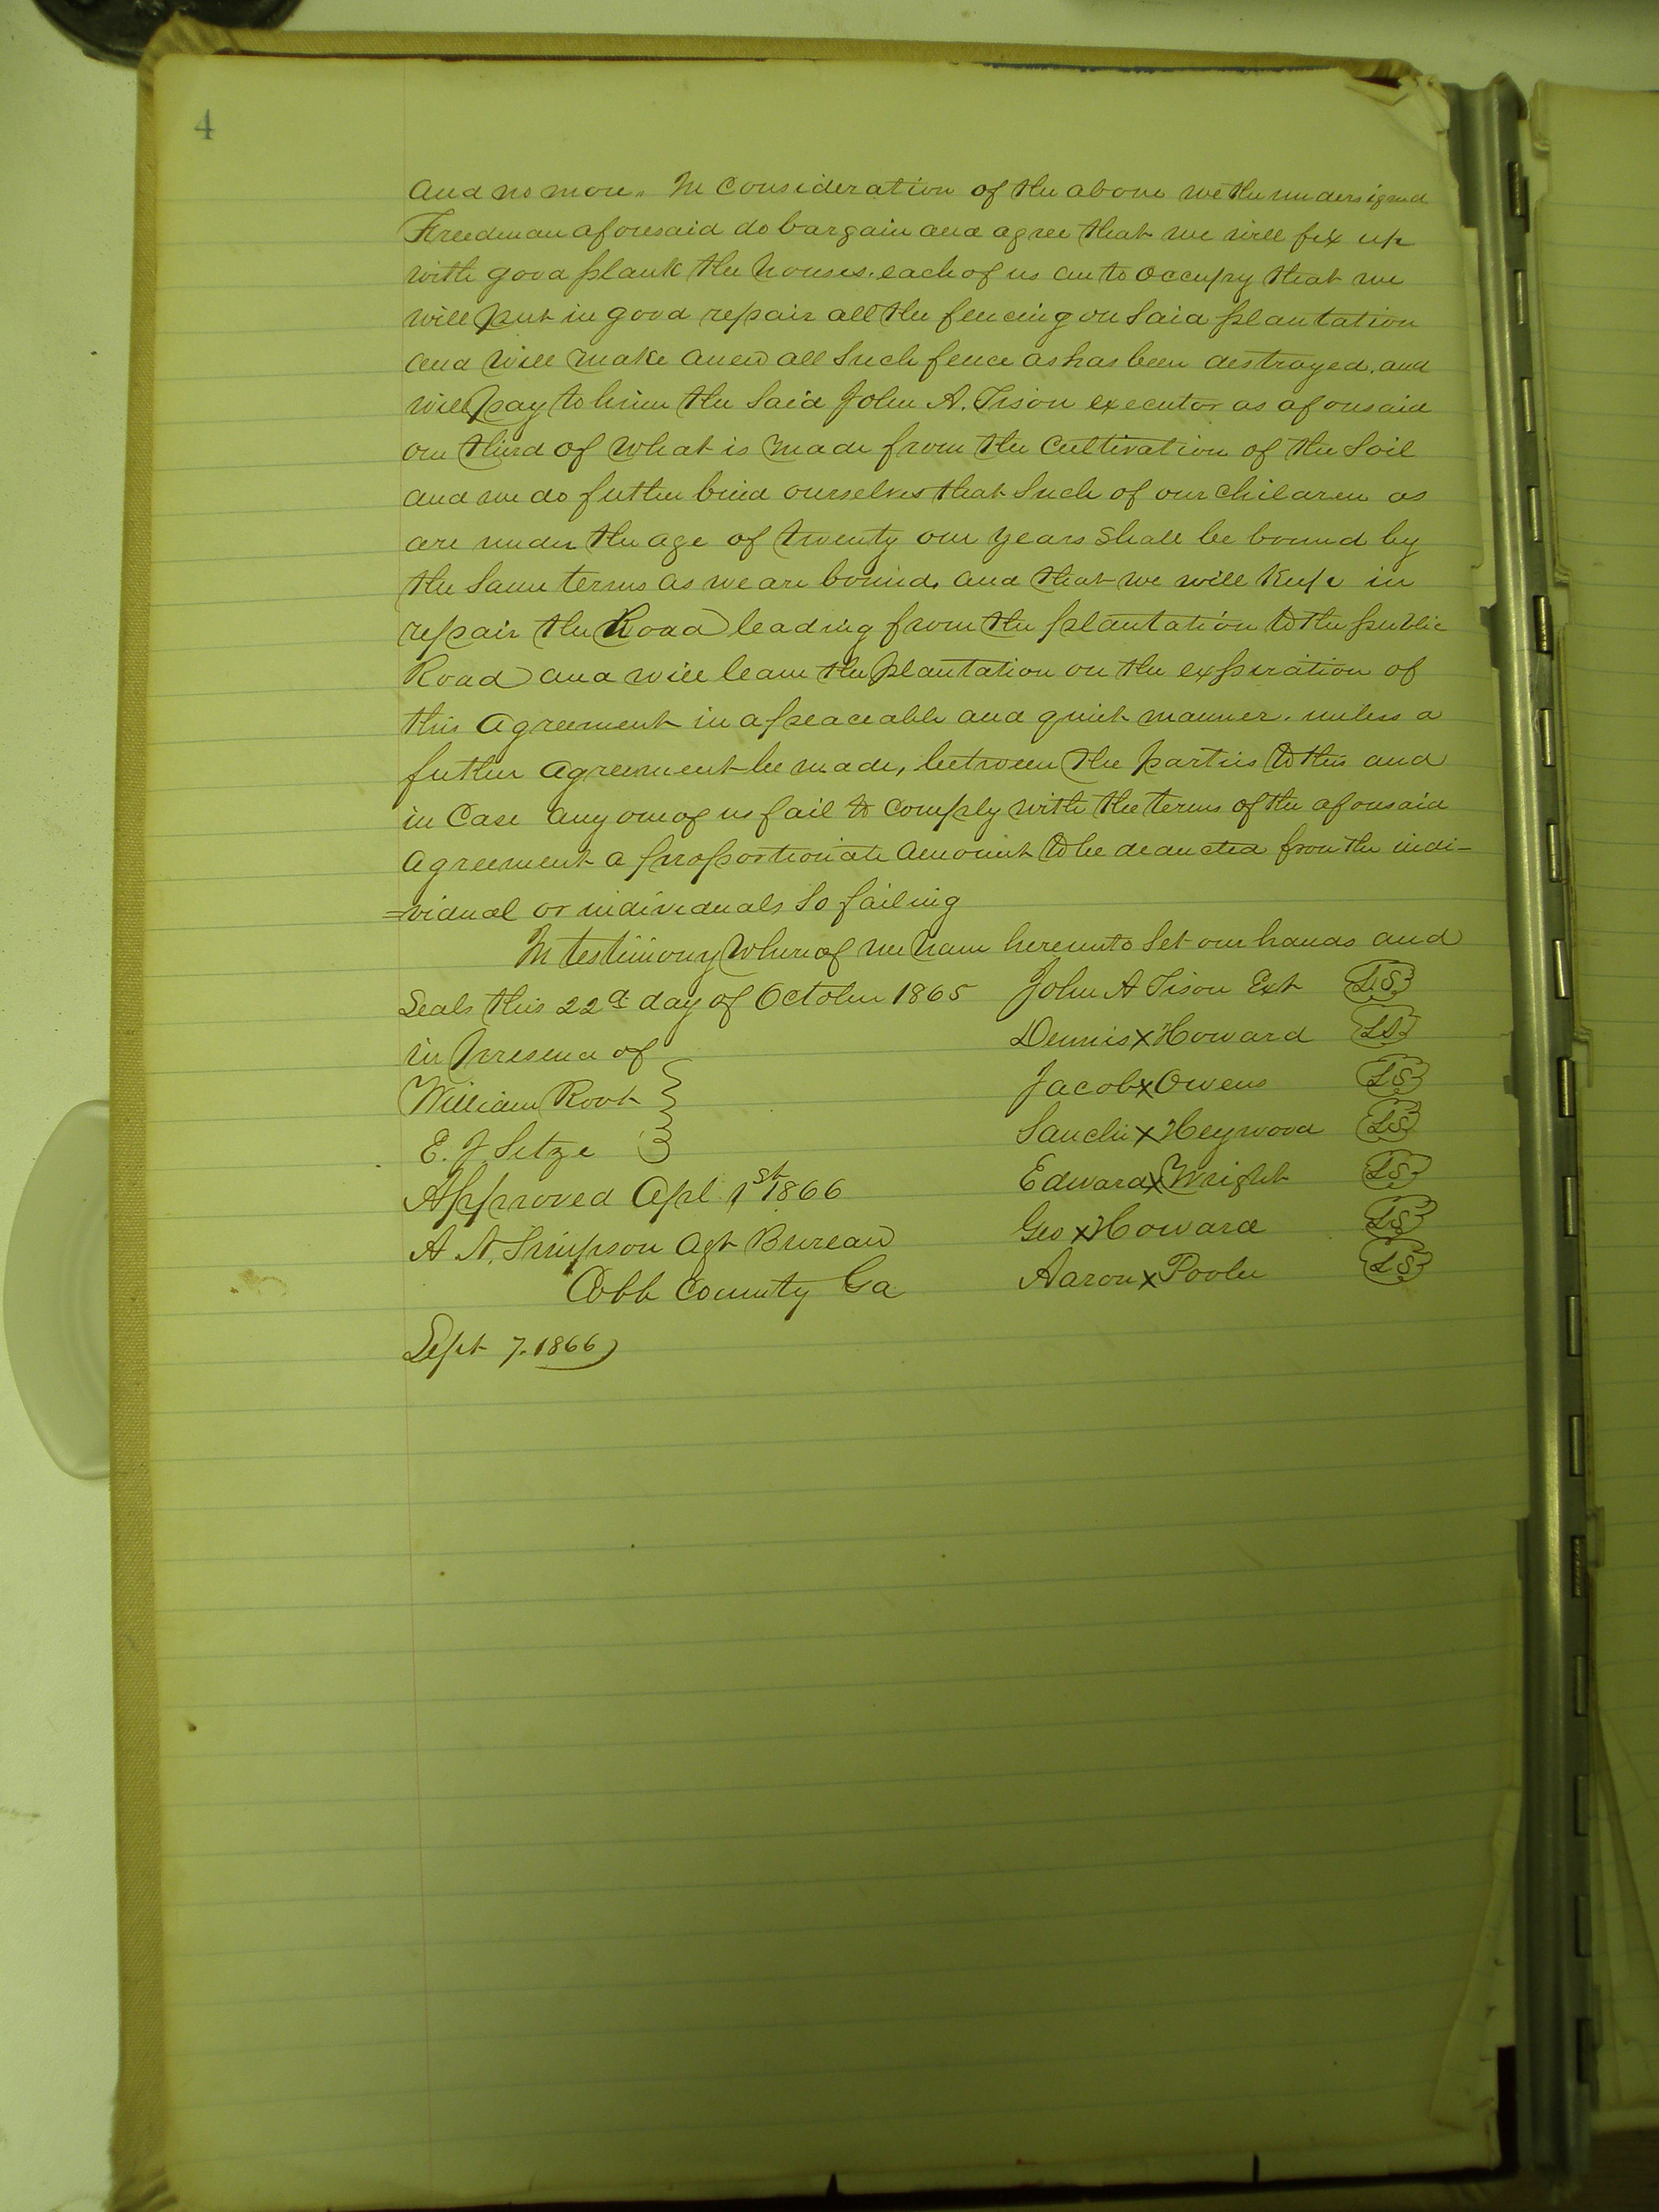 4
and no more. In Consideration of the above we the undersigned
Freedman aforesaid do bargain and agree that we will fix up
with good plank the houses. each of us are to occupy that we
will put in good repair all the fencing on said plantation
and will make anew all such fence as has been destroyed, and
will pay to him the said John A. Tison executor as aforesaid
one third of what is made from the Cultivation of the Soil
and we do futher bind ourselves that such of our children as
are under the age of twenty one years shall be bound by
the same terms as we are bound, and that we will keep in
repair the Road leading from the plantation to the public
Road and will leave the plantation on the expiration of
this Agreement in a peaceable and quiet manner. unless a
futher Agreement be made, between the parties to this and
in Case any one of us fail to comply with the terms of the aforesaid
Agreement a proportionate amount to be deducted from the indi-
=vidual or individuals so failing
In testimony whereof we have hereunto set our hands and
Seals this 22d day of October 1865 John A Tison Ext LS
in presence of Dennis x Howard LS
William Root Jacob x Owens LS
E. J. Setze x Heywood LS
Approved Apl 1st 1866 Edward x Wright LS
A N. Simpson Agt Bureau Geo x Howard LS
Cobb County Ga Aaron x Pooler LS
Sept 7. 1866